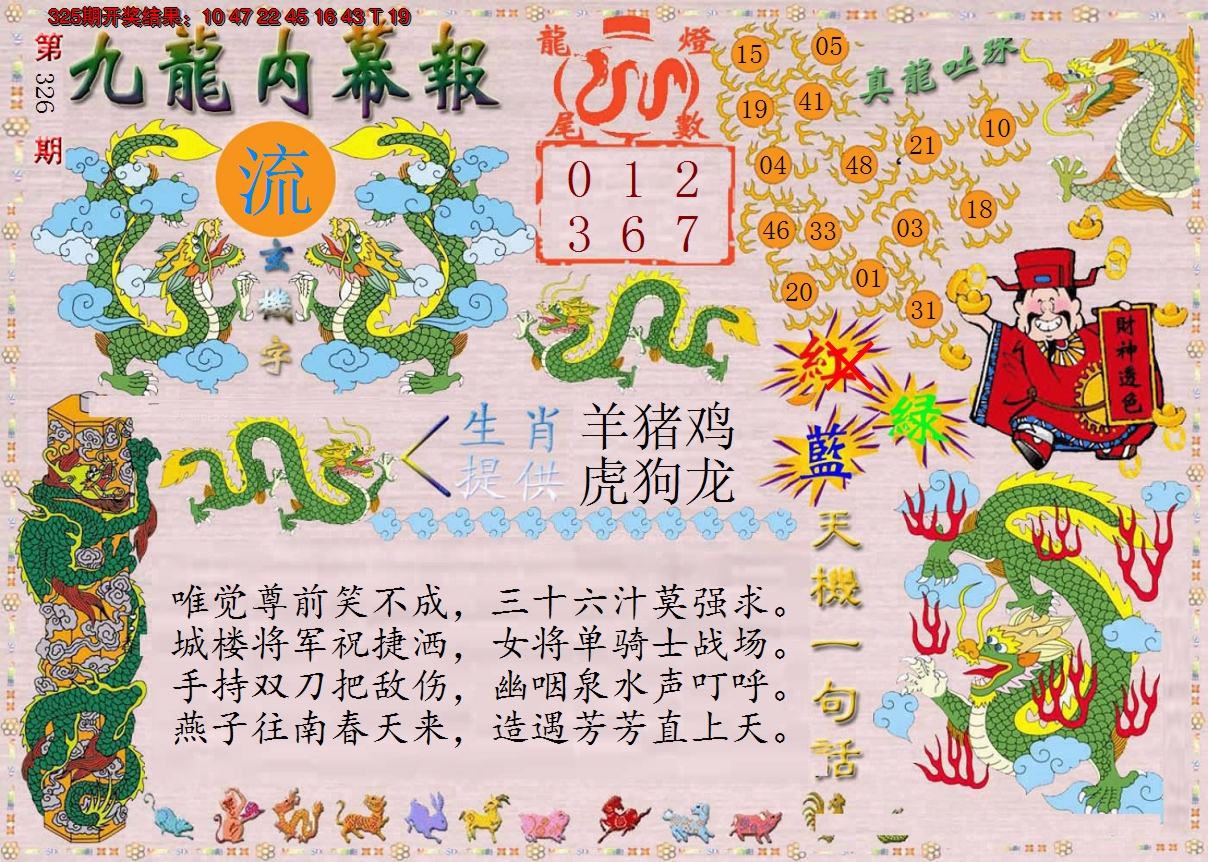 325期开奖结果：10 47 22 45 16 43 T 19
第326期
九龍内幕報
流
玄機字
龍燈
尾數
0 1 2
3 6 7
真龍吐珠
15 05
19 41
04 48 21 10
46 33 03 18
20 01 31
紅
綠
藍
財神透色
生肖 羊猪鸡
提供 虎狗龙
天機一句話
唯觉尊前笑不成，三十六汁莫强求。
城楼将军祝捷洒，女将单骑士战场。
手持双刀把敌伤，幽咽泉水声叮呼。
燕子往南春天来，造遇芳芳直上天。